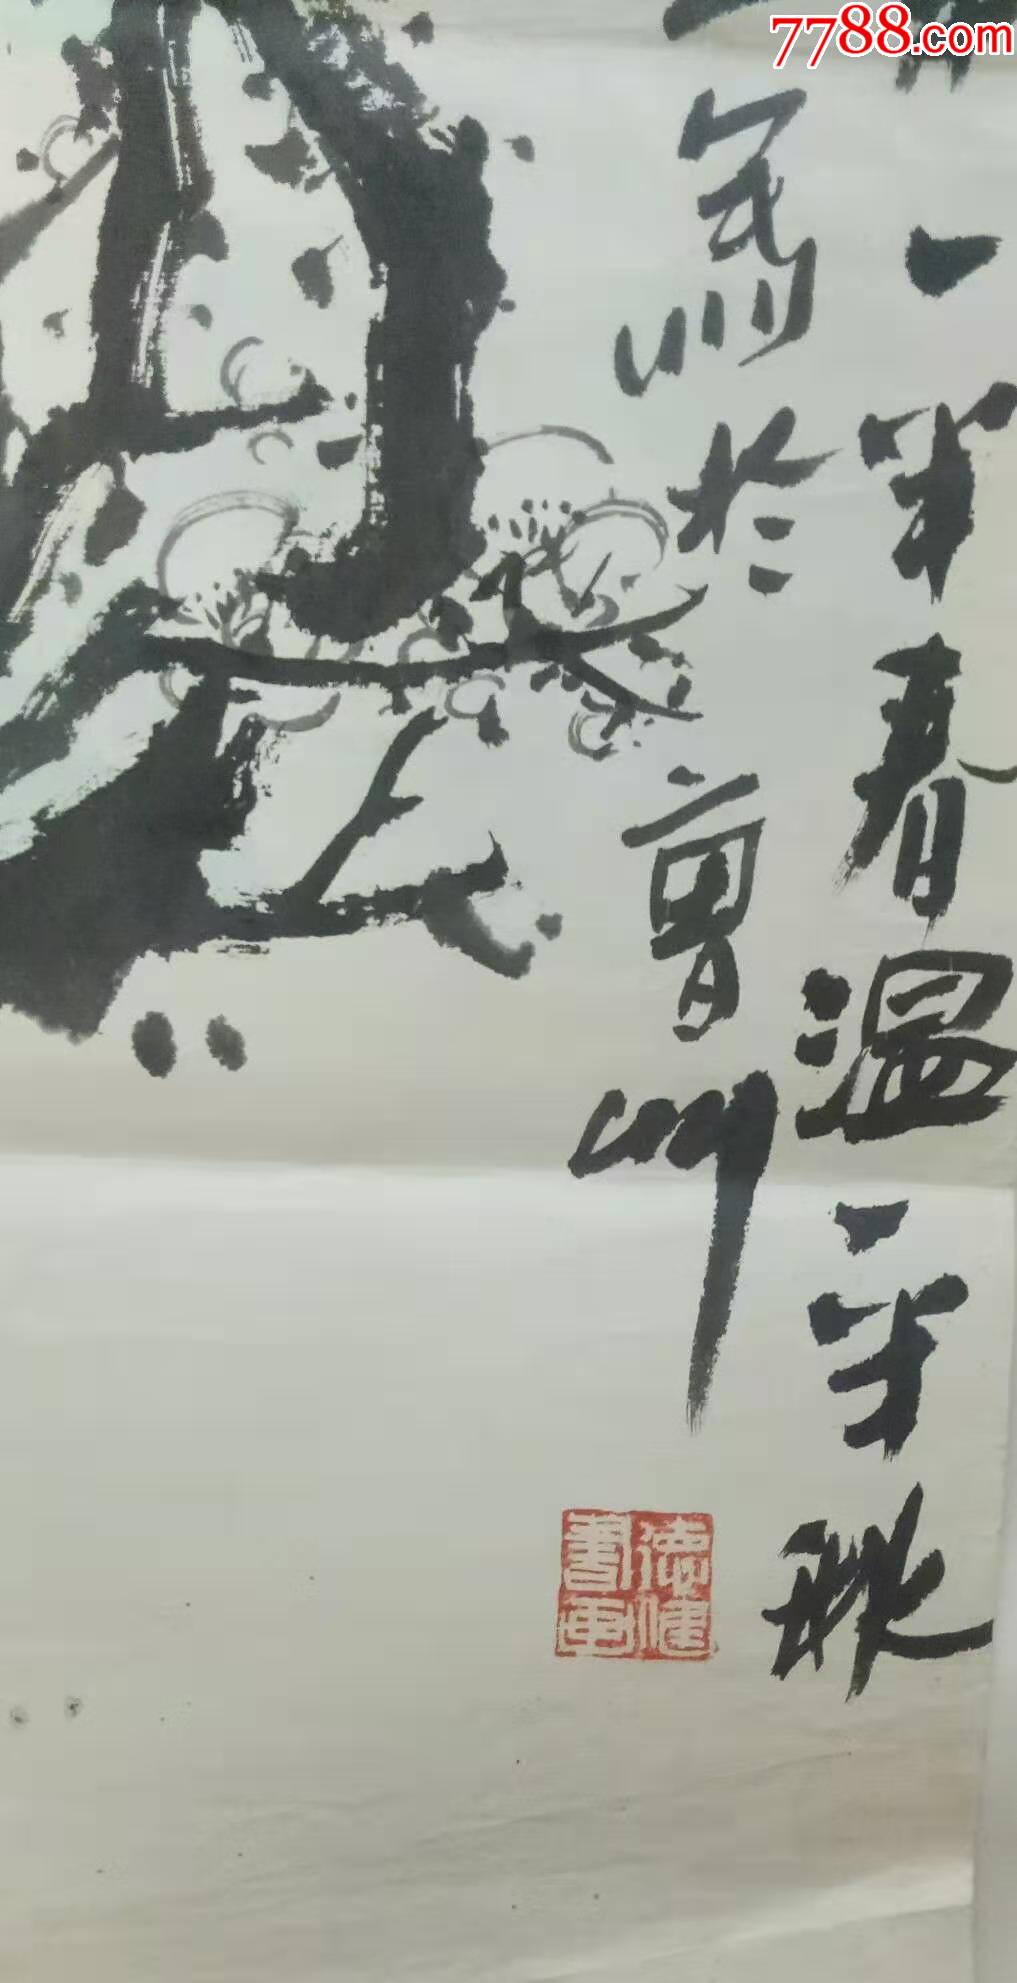 7788.com
一半春温一半秋
寫於曹州
德健
書画